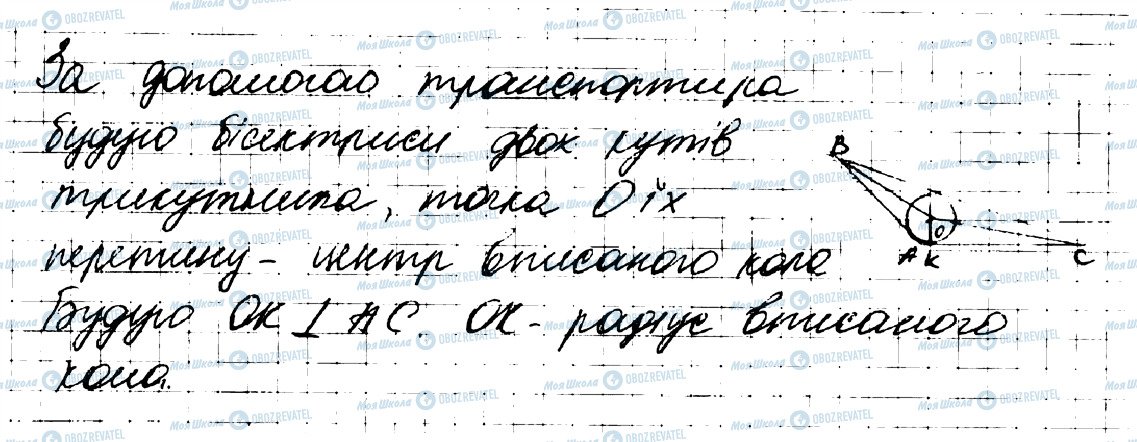 За допомогою транспортира
будую бісектриси двох кутів
трикутника, точка О їх
перетину - центр вписаного кола
Будую ОК ⊥ АС. ОК - радіус вписаного
кола.
В
О
А К С